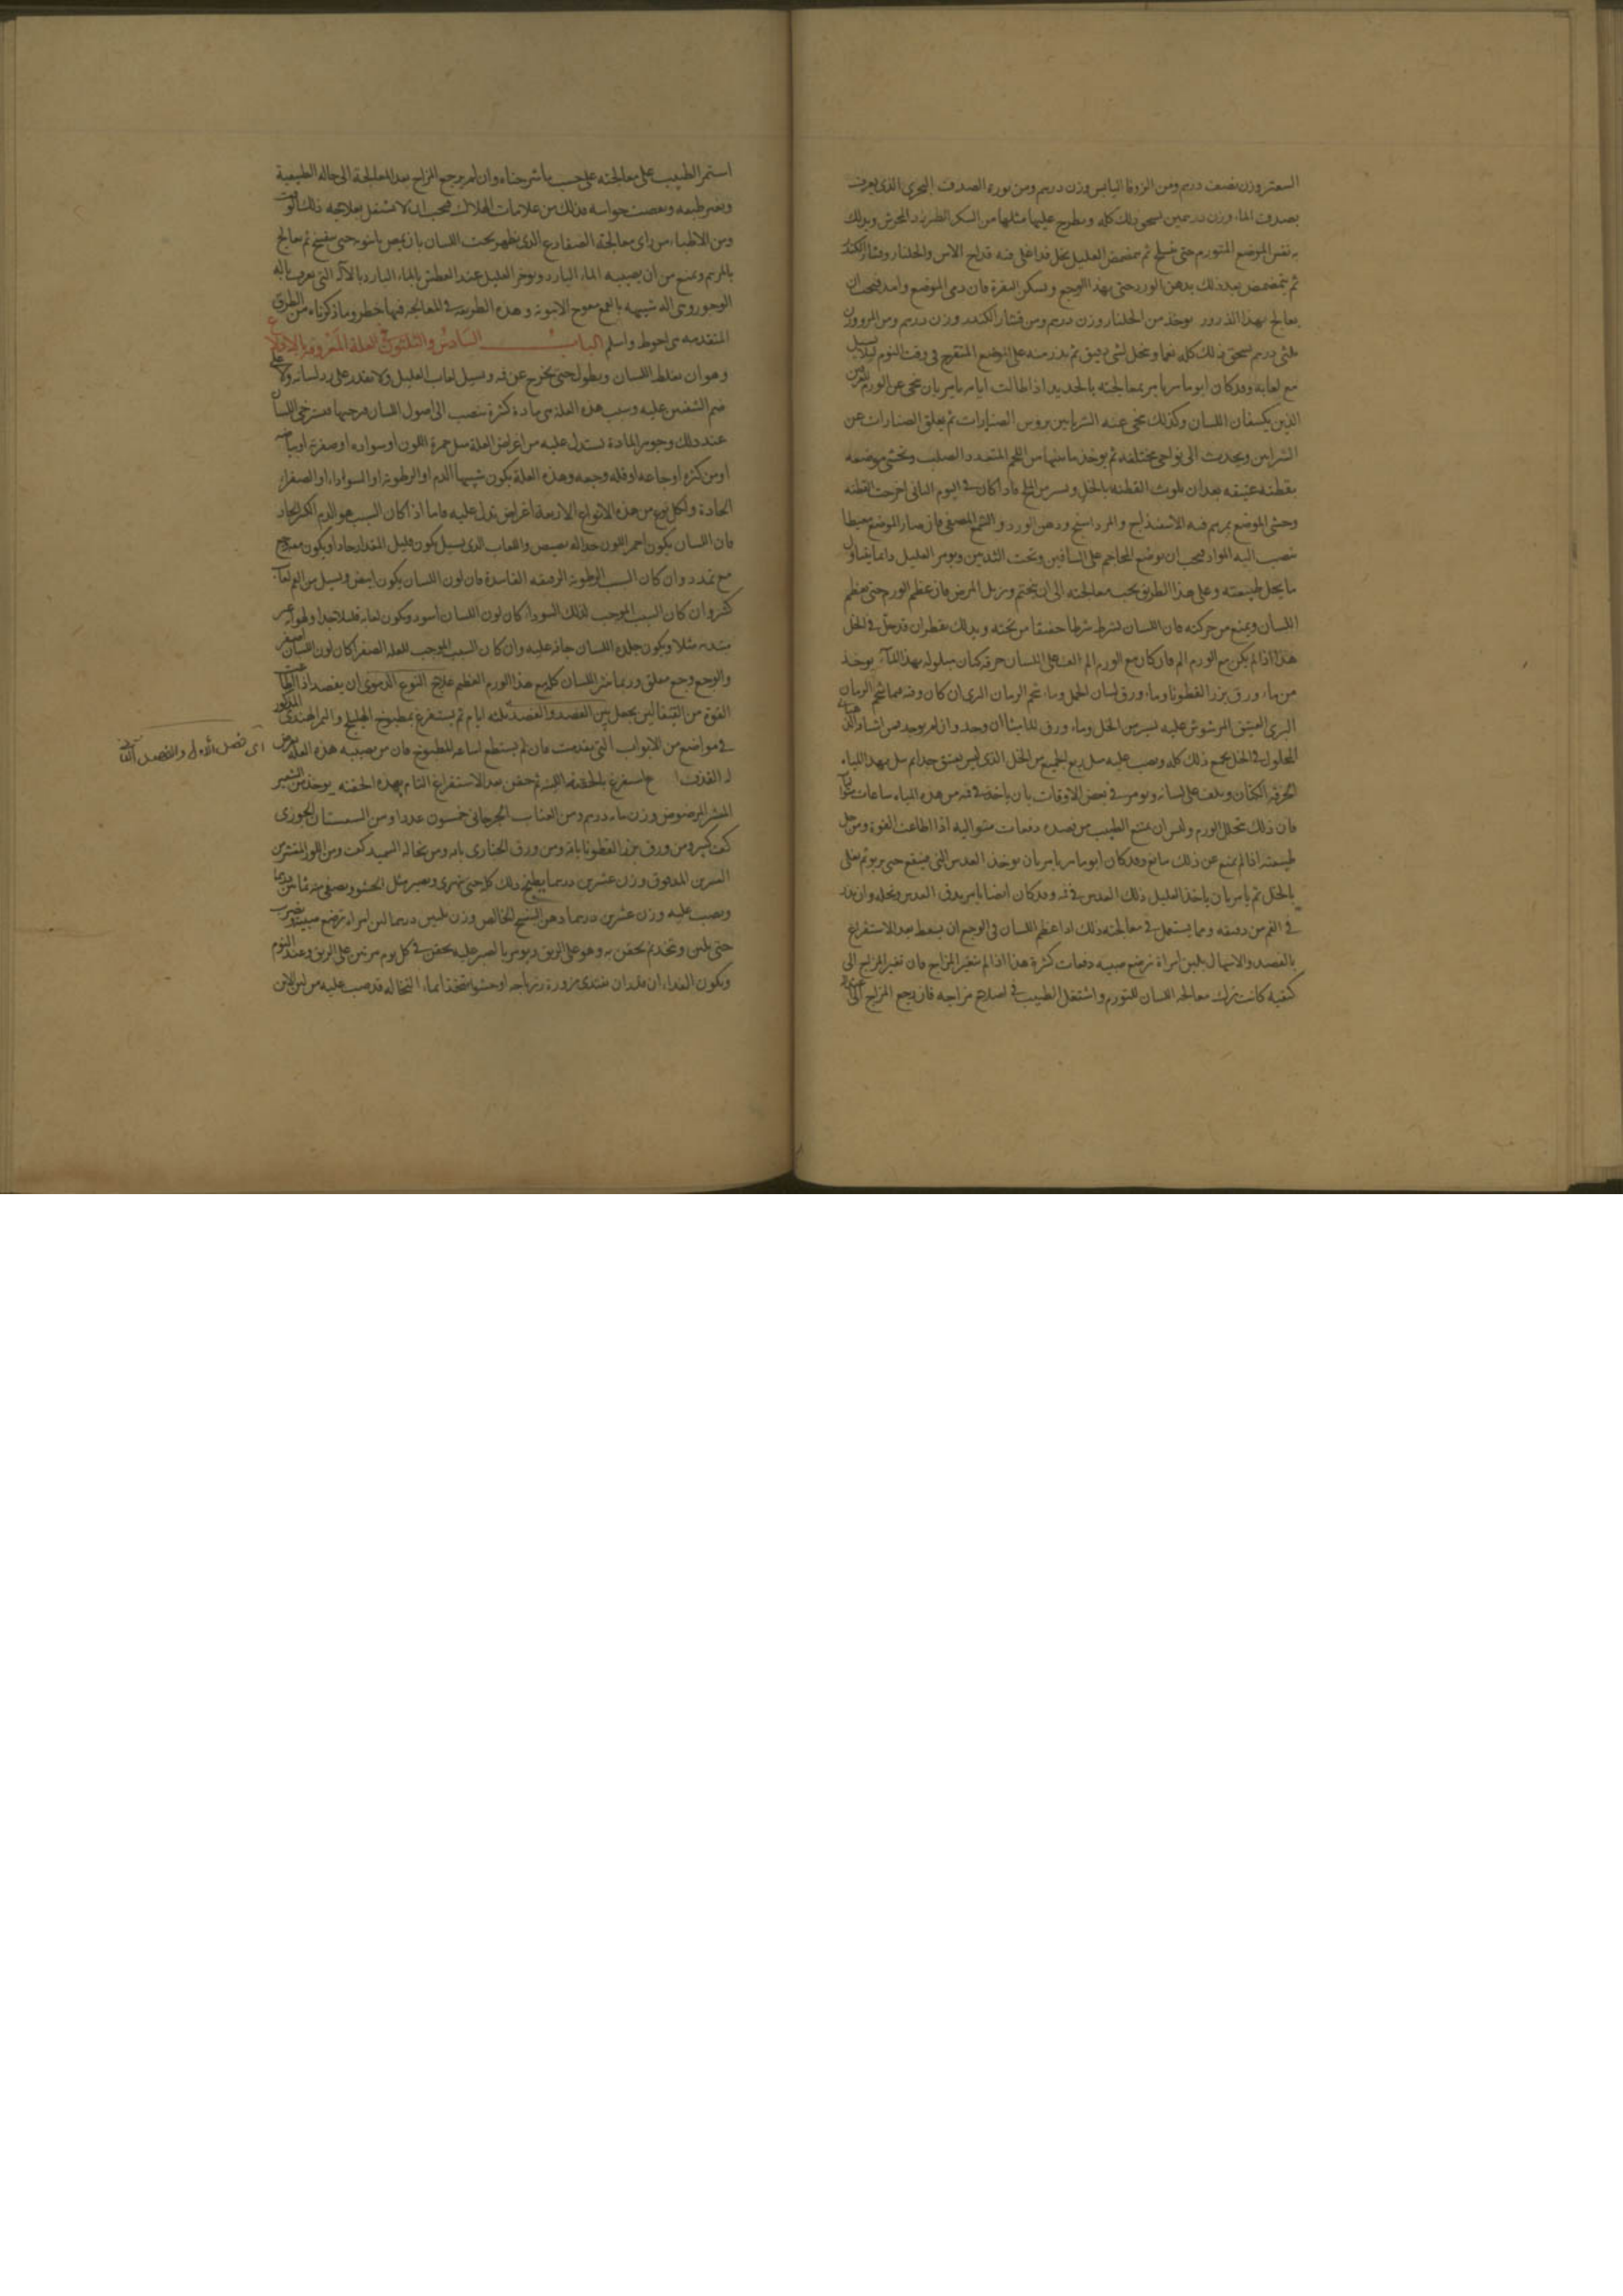 السعتر وزن نصف درهم ومن الزوفا اليابس وزن درهم ومن نورة الصدف البحري الذي يعرف
بصدف الماء وزن درهمين يسحق ذلك كله ويطرح عليها مثلها من السكر الطبرزد المجرش ويدلك
به نفس الموضع المتورم حتى ثم يتمضمض العليل بخل قد اغلى فيه قداح الاس والجلنار وقشار الكندر
ثم يتمضمض بعد ذلك بدهن الورد حتى يهدا الوجع ويسكن فان دمي الموضع فيجب ان
يعالج بهذا الذرور يوخذ من الجلنار وزن درهم ومن قشار الكندر وزن درهم ومن المر وزن
ثلثي درهم يسحق ذلك كله نعما وينخل لشي دقيق ثم يذر منه على الموضع المتقرح في وقت النوم ليلا
مع لعابه وقد كان ابو ماهر يامر بمعالجته بالحديد اذا طالت ايامه يامر بان ينحى عن الورم
الذين يكنفان اللسان وكذلك ينحى عنه الشريانين بروس الصنارات ثم يعلق الصنارات عن
الشرايين ويجذب الى نواحي مختلفه ثم يوخذ ما بينها من اللحم المتعدد الصلب ويحشى موضعه
بقطنة عتيقه بعد ان تلوث القطنة بالخل ويسير من الملح فاذا كان في اليوم الثاني اخرجت القطنه
وحشي الموضع بمرهم فيه الاسفيذاج والمرداسنج ودهن الورد والشمع المصفى فان صار الموضع مغيضا
تنصب اليه المواد فيجب ان توضع المحاجم على الساقين وتحت الثديين ويومر العليل دائما بتناول
ما يحل طبيعته وعلى هذا الطريق يجب معالجته الى ان يختم ويزيل المرض فان عظم الورم حتى يعظم
اللسان ويمنع من حركته فان اللسان يشرط شرطا خفيفا من تحته ويدلك بقطران قد حل في الخل
هذا اذا لم يكن مع الورم الم فان كان مع الورم الم الف على اللسان خرقة كتان مبلولة بهذا الماء يوخذ
من ماء ورق بزر القطونا وماء ورق لسان الحمل وماء شحم الرمان الري ان كان وقته شحم الرمان
البري العتيق المرشوش عليه يسير من الخل وماء ورق ان وجد وان لم يوجد
المحلول في الخل يجمع ذلك كله ويصب عليه مثل ربع الجميع من الخل الذي ليس بعتيق جدا ثم يبل بهذا المياه
الخرقة الكتان ويلف على لسانه ويومر في بعض الاوقات بان ياخذ في فيه من هذه المياه ساعات
فان ذلك يحلل الورم وليس ان يمتنع الطبيب من فصده دفعات متوالية اذا اطاعت القوة ومن حل
طبيعته اذا لم يمنع عن ذلك مانع وقد كان ابو ماهر يامر بان يوخذ العدس الني فينقع حتى يربو ثم يغلى
بالخل ثم يامر بان ياخذ العليل ذلك العدس في فيه وقد كان ايضا يامر بدق العدس ونخله وان يذر
في الفم من دقيقه ومما يستعمل في معالجته ذلك اذا عظم اللسان في الوجع ان يسعط بعد الاستفراغ
بالفصد والاسهال بلبن امراة ترضع صبية دفعات كثيرة هذا اذا لم يتغير المزاج فان تغير المزاج الى
كيفيه كانت ترك معالجة اللسان للتورم واشتغل الطبيب في اصلاح مزاجه فان رجع المزاج
استمر الطبيب على معالجته على حسب ما شرحناه وان لم يرجع المزاج بعد المعالجة الى حاله الطبيعية
وتغير طبعه ونقصت حواسه فذلك من علامات الهلاك فيجب ان لا يشتغل بعلاجه ذلك الوقت
ومن الاطباء من راى معالجة الضفادع الذي يظهر تحت اللسان بان حتى ينفتح ثم يعالج
بالمرهم ويمنع من ان يصيبه الماء البارد ويوجر العليل عند العطش بالماء البارد بالالة التي تعرف بالة
الوجور وهي الة شبيهة بالقمع معوج الانبوبة وهذه الطريقة في المعالجة فيها خطر وما ذكرناه من الطرق
المتقدمه هي احوط واسلم الباب السادس والثلثون في العلة المعروفة
وهو ان يغلظ اللسان ويطول حتى يخرج عن فيه ويسيل لعاب العليل ولا يقدر على رد لسانه ولا على
ضم الشفتين عليه وسبب هذه العلة هي مادة كثيرة تنصب الى اصول اللسان فيسترخي اللسان
عند ذلك وجوهر المادة يستدل عليه من اعراض العلة مثل حمرة اللون او سواده او صفرته او بياضه
او من كثرة اوجاعه او قلة وجعه وهذه العلة يكون سببها الدم او الرطوبة او السوداء او الصفراء
الحادة ولكل نوع من هذه الانواع الاربعة اعراض تدل عليه فاما اذا كان السبب هو الدم الحاد
فان اللسان يكون احمر اللون واللعاب الذي يسيل يكون قليل المقدار حادا ويكون معه وجع
مع تمدد وان كان السبب الرطوبة الفاسدة فان لون اللسان يكون ابيض ويسيل من الفم لعاب
كثير وان كان السبب الموجب لذلك السوداء كان لون اللسان اسود ويكون لعابه قليلا جدا
ويكون جلدة اللسان جافة عليه وان كان السبب الموجب للعلة الصفراء كان لون اللسان اصفر
والوجع وجع مقلق وربما خشن اللسان كله مع هذا الورم العظيم علاج النوع الدموي ان يفصد اذا اطاعت
القوة من القيفالين يجعل بين الفصد والفصد ثلثة ايام ثم يستفرغ بمطبوخ الهليلج والتمر الهندي المذكور
في مواضع من الابواب التي تقدمت فان لم يستطع اساغة المطبوخ فان من يصيبه هذه العلة
استفرغ بالحقنة اللينة ثم حقن بعد الاستفراغ التام بهذه الحقنه يوخذ من الشعير
المقشر المرضوض وزن مائة درهم ومن العناب الجرجاني خمسون عددا ومن السبستان
كف كبير ومن ورق بزر القطونا باقة ومن ورق الخبازى باقة ومن نخالة السميد كف ومن اللوز المقشر من
القشرين المدقوق وزن عشرين درهما يطبخ ذلك كله حتى يتهرى ويصير مثل الحشو ويصفى
ويصب عليه وزن عشرين درهما دهن البنفسج الخالص وزن ثلثين درهما لبن امراة ترضع صبية ويضرب
حتى ثم يحقن به وهو على الريق ويومر بالصبر عليه يحقن في كل يوم مرتين على الريق وعند النوم
ويكون الغذاء ان قدر ان يغتذي مزورة زيرباجه او حشوا متخذا بماء النخالة قد صب عليه من لبن الاتن
اى فصل الاول والفصل الثانى